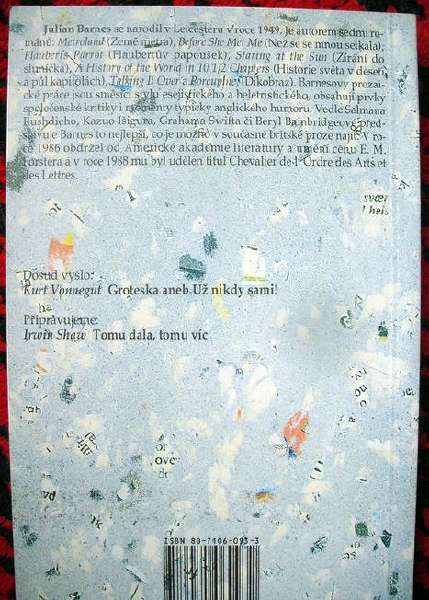 Julian Barnes se narodil v Leicesteru v roce 1949. Je autorem sedmi ro-
mánů: Metroland (Země metra), Before She Met Me (Než se se mnou setkala),
Flaubert's Parrot (Flaubertův papoušek), Staring at the Sun (Zírání do
sluníčka), A History of the World in 10 1/2 Chapters (Historie světa v deseti
a půl kapitolách), Talking It Over a Porcupine (Dikobraz). Barnesovy prozai-
cké práce jsou směsicí stylu esejistického a beletristického, obsahují prvky
společenské kritiky i rozměry typicky anglického humoru. Vedle Salmana
Rushdieho, Kazuo Išigura, Grahama Swifta či Beryl Bainbridgeové před-
stavuje Barnes to nejlepší, co je možné v současné britské próze najít. V ro-
ce 1986 obdržel od Americké akademie literatury a umění cenu E. M.
Forstera a v roce 1988 mu byl udělen titul Chevalier de l'Ordre des Arts et
des Lettres.
Dosud vyšlo:
Kurt Vonnegut Groteska aneb Už nikdy sami!
Připravujeme:
Irwin Shaw Tomu dala, tomu víc
ISBN 80-7106-093-3